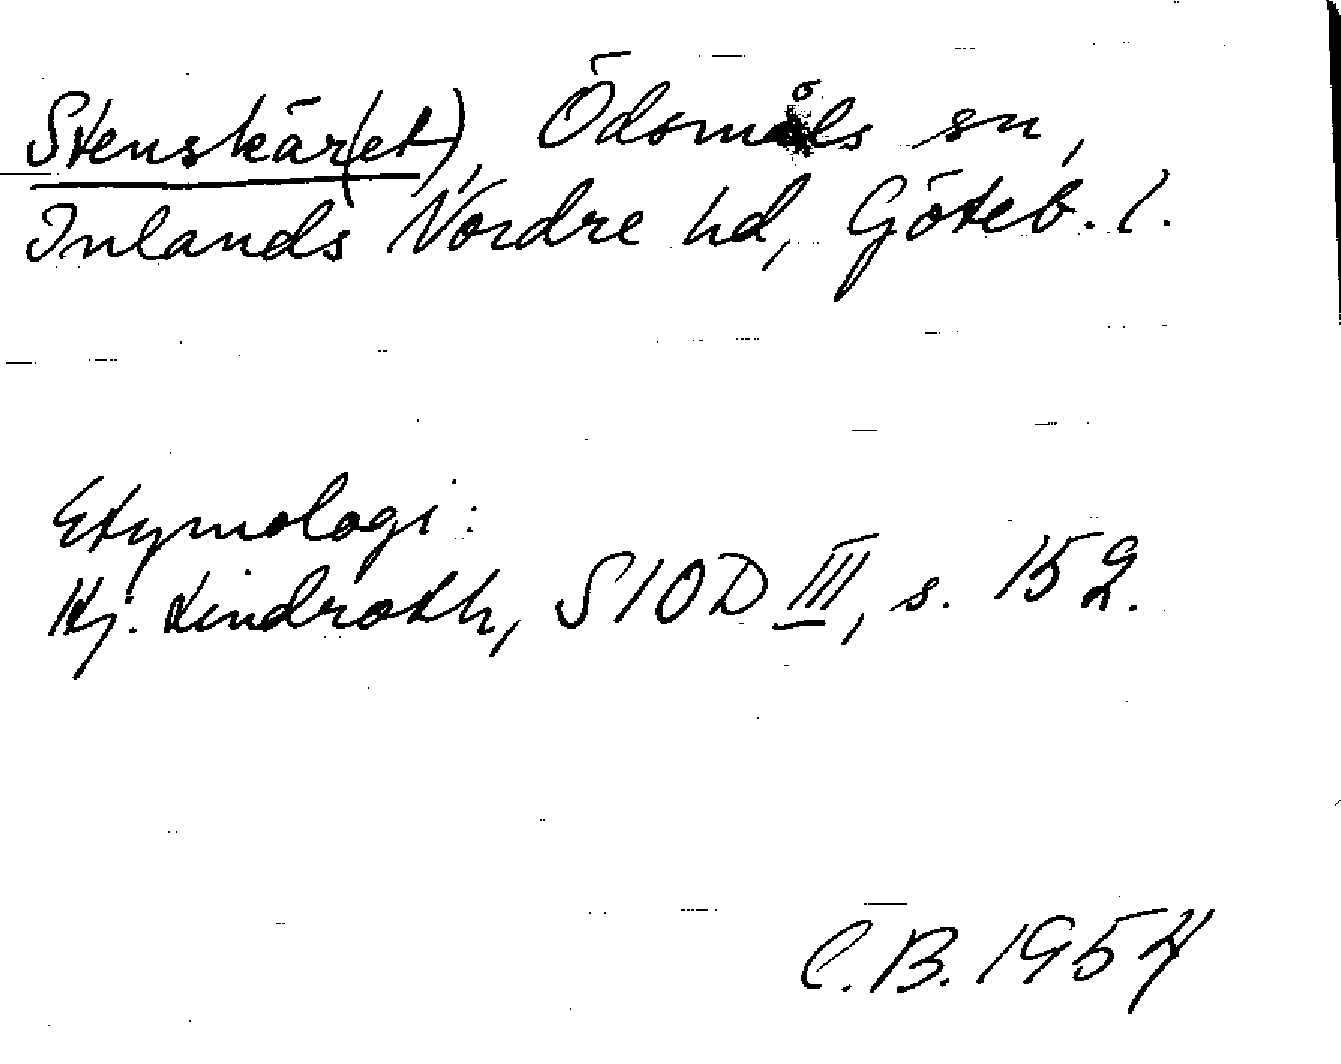 Stenskär(et), Ödsmåls sn,
Inlands Nordre hd, Göteb. l.
Etymologi:
Hj. Lindroth, SIOD III, s. 152.
C.B. 1954